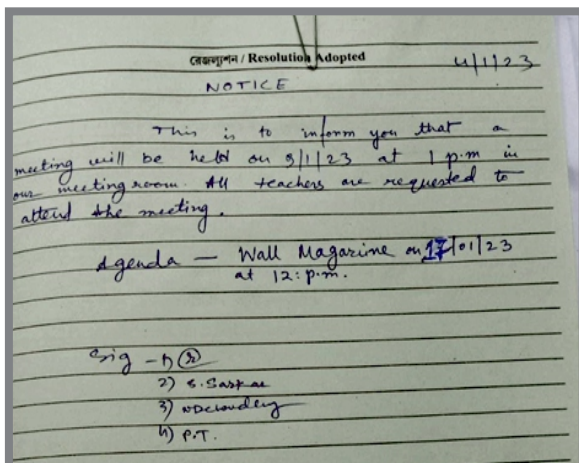 রেজল্যুশন / Resolution Adopted
4/1/23
NOTICE
This is to inform you that a
meeting will be held on 9/1/23 at 1 p.m in
our meeting room. All teachers are requested to
attend the meeting.
Agenda — Wall Magazine on 17/01/23
at 12: p.m.
Sig - 1)
2) S. Sarkar
3)
4) P.T.